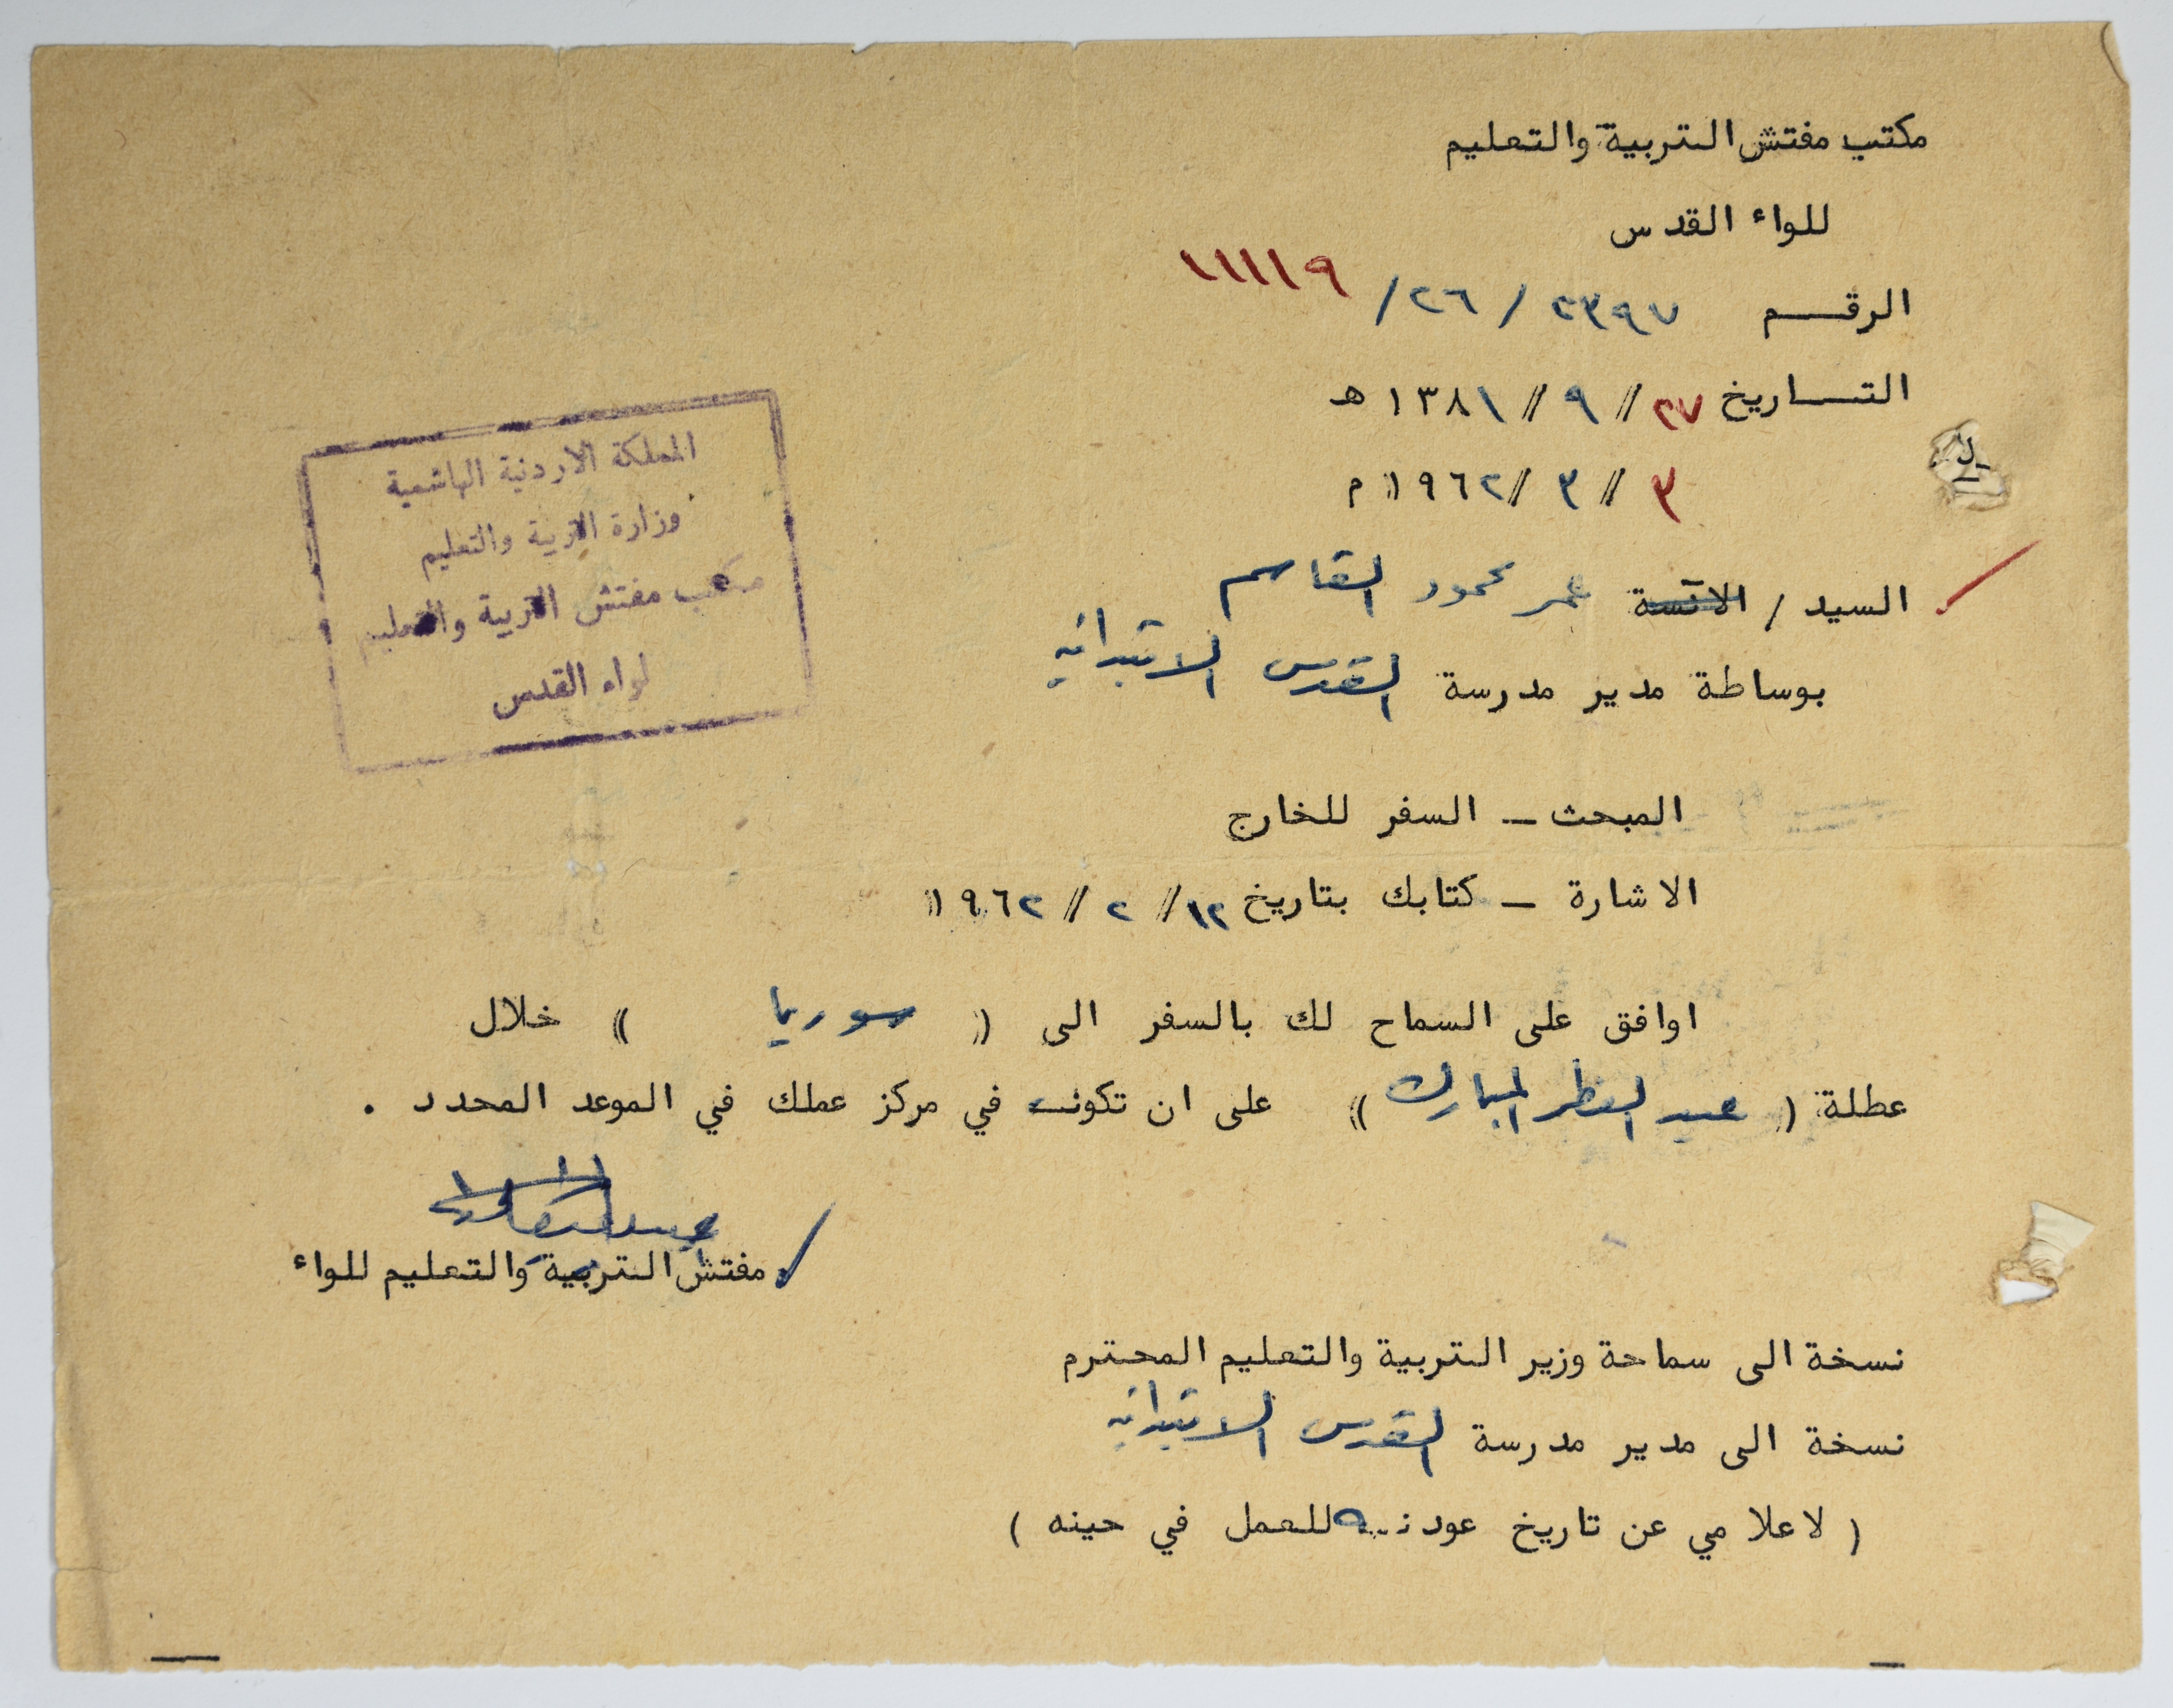 مكتب مفتش التربية والتعليم
للواء القدس
الرقم ٢٣٩٧ / ٢٦/ ١١١١٩
التاريخ ٢٧ // ٩ // ١٣٨١ هـ
٣ // ٣ // ١٩٦٢ م
السيد / الآنسة عمر محمود القاسم
بوساطة مدير مدرسة القدس الابتدائيه
المملكة الاردنية الهاشمية
وزارة التربية والتعليم
مكتب مفتش التربية والتعليم
لواء القدس
المبحث ــ السفر للخارج
الاشارة ــ كتابك بتاريخ ١٢ // ٢ // ١٩٦٢
اوافق على السماح لك بالسفر الى ( سوريا ) خلال
عطلة ( عيد الفطر المبارك ) على ان تكون في مركز عملك في الموعد المحدد .
مفتش التربية والتعليم للواء
نسخة الى سماحة وزير التربية والتعليم المحترم
نسخة الى مدير مدرسة القدس الابتدائيه
( لاعلامي عن تاريخ عودته للعمل في حينه )